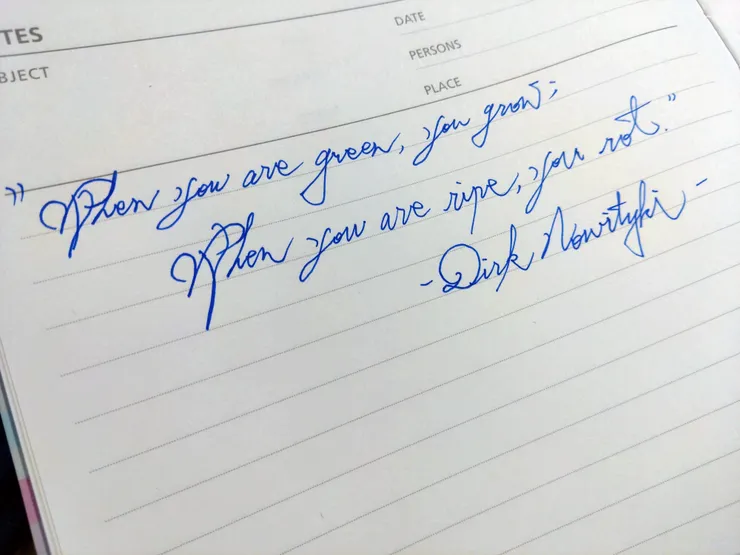 TES
DATE
BJECT
PERSONS
PLACE
"When you are green, you grow;
When you are ripe, you rot."
- Dirk Nowitzki -